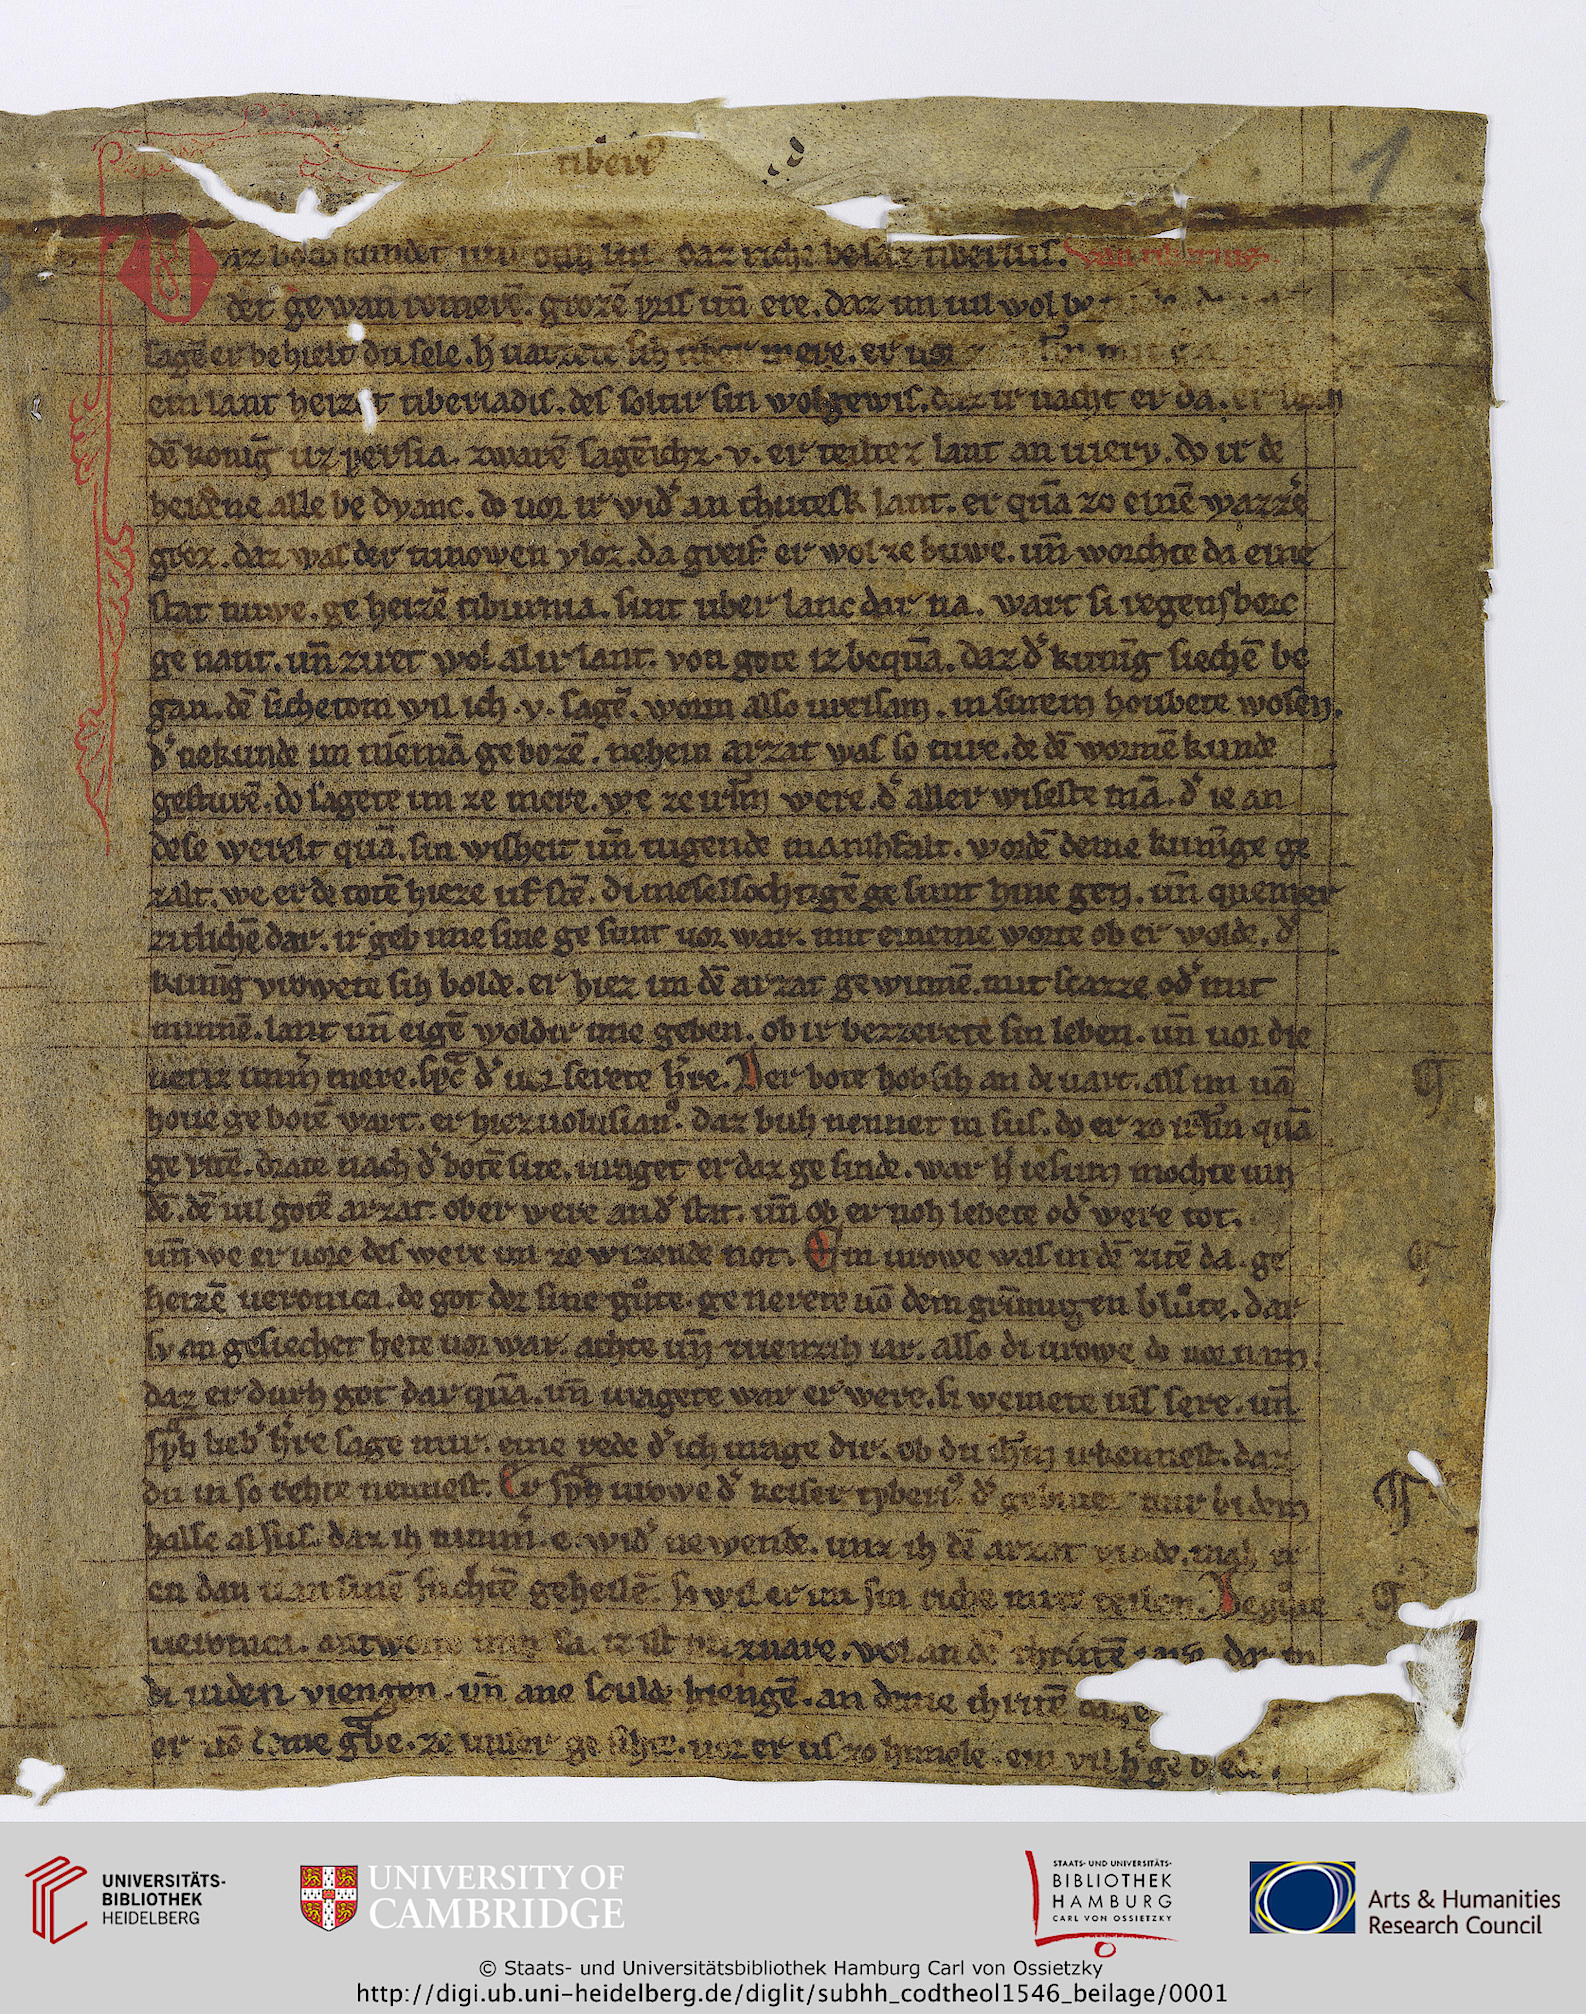 tiberiꝰ
1
az boch kundet uns ouch uil. daz riche besaz tiberius. van tiberius
der ge wan romerē. grozē pris uñ ere. daz un uil wol
sagē er behielt du sele. h̓ uarzete sih uber mere. er
ein lant heizet tiberiadis. des soltir sin wolgewis. daz ir uacht er da. er
dē konīg uz persia. zwarē sagēichz. v. er teiltez lant an uiery. do ir de
heidene alle be dvanc. do uor ir wid᷑ an thutesk lant. er qūa zo einē wazzē
groz. daz was der tunowen vloz. da greif er wol ze buwe. uñ worchte da eine
stat nuwe. ge heizē tiburnia. sint uber lanc dar na. wart si regensborc
ge nant. uñ ziret wol al ir lant. von gote iz bequā. daz d᷑ kunīg siechē be
gan. dē sichetom wil ich. v. sagē. worm also ureisam. in sinem houbete wosen.
d᷑ nekunde im niemā ge bozē. nehein arzat was so ture. de dē wormē kunde
gesturē. do sagete im ze mere. we ze irlm̄ were. d᷑ aller wiseste mā. d᷑ ie an
dese werelt quā. sin wisheit uñ tugende manihfalt. wordē deme kunīge ge
zalt. we er de totē hieze uf stē. di meselsochtigē ge sunt hine gen. uñ quemer
zitlichē dar. ir geb ime sine ge sunt uor war. mit eineme worte ob er wolde. d᷑
kunīg vrowete sih bolde. er hiez im dē arzat gewinnē. mit scazze od᷑ mit
minnē. lant uñ eigē woldir ime geben. ob ir bezzerete sin leben. uñ uor die
uertiz imm̓ mere. spͨ d᷑ uor serete h̓re. Der bote hob sih an di uart. alſ im uā
houe ge botē wart. er hiez uolusianꝰ. daz buh nennet in sus. do er zo irlm̄ quā
ge ritē. drate nach d᷑ botē site. uraget er daz ge sinde. war h̓ iesum mochte uin
dē. dē uil gotē arzat. ober were and᷑ stat. uñ ob er noh lebete od᷑ were tot.
uñ we er uore des were im ze wizende not. Ein urowe was in dē zitē da. ge
heizē ueronica. de got dor sine gůte. ge nerete uō dem grīmigen blůte. dar
sv an gesiechet hete uor war. achte uñ zuenzih iar. also di urowe do uor nam.
daz er durh got dar quā. uñ uragete war er were. si weinete uil sere. uñ
spͣh lieb᷑ h̓re sage mir. eine rede d᷑ ich urage dir. ob du ih̄m irkennest. daz
du in so rehte nennest. Er spͣh urowe d᷑ keiser tyberiꝰ. d᷑ gebutez mir bi dem
halse alsus. daz ih nimm̓. e. wid᷑ ne wende. unz ih dē arzat uinde. mah er
en dan uan sinē suchtē geheilē. so wil er im sin riche mite teilen. Degůte
ueronica. antworte im sa. iz ist zuare. wol an dē dar in
di iuden viengen. uñ ane sculde hiengē. an deme chruce
er uō deme gͣbe. ze unser ge sihte. uor er uf zo himele. ein vil h̓ ge
UNIVERSITÄTS-
BIBLIOTHEK
HEIDELBERG
UNIVERSITY OF
CAMBRIDGE
STAATS- UND UNIVERSITÄTS-
BIBLIOTHEK
HAMBURG
CARL VON OSSIETZKY
Arts & Humanities
Research Council
© Staats- und Universitätsbibliothek Hamburg Carl von Ossietzky
http://digi.ub.uni-heidelberg.de/diglit/subhh_codtheol1546_beilage/0001